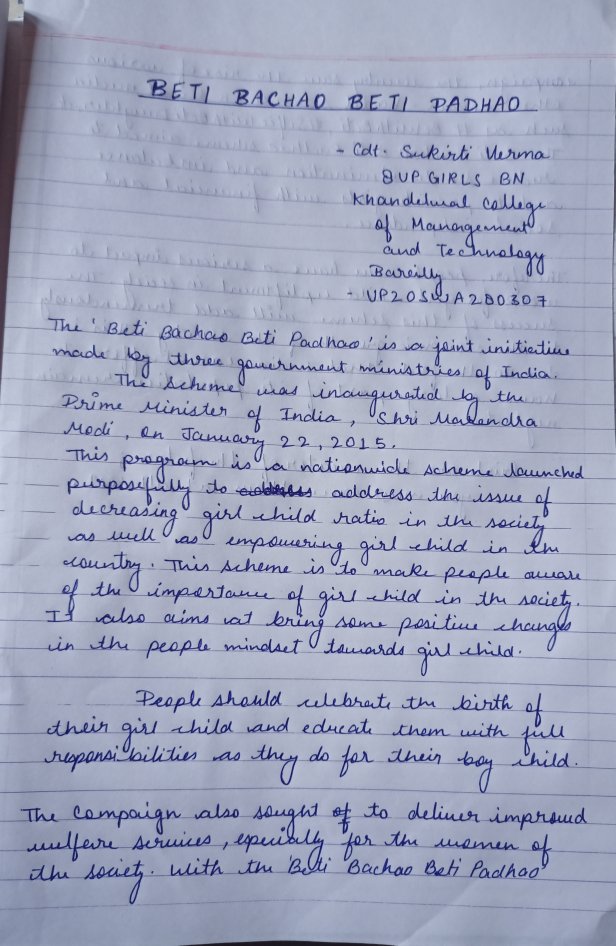 BETI BACHAO BETI PADHAO
- Cdt. Sukirti Verma
8 UP GIRLS BN
Khandelwal College
of Management
and Technology
Bareilly
- UP20SWA280307
The 'Beti Bachao Beti Padhao' is a joint initiative
made by three government ministries of India.
The scheme was inaugurated by the
Prime Minister of India, Shri Narendra
Modi, on January 22, 2015.
This program is a nationwide scheme launched
purposefully to address the issue of
decreasing girl child ratio in the society
as well as empowering girl child in the
country. This scheme is to make people aware
of the importance of girl child in the society.
It also aims at bring some positive changes
in the people mindset towards girl child.
People should celebrate the birth of
their girl child and educate them with full
responsibilities as they do for their boy child.
The campaign also sought of to deliver improved
welfare services, especially for the women of
the society. With the 'Beti Bachao Beti Padhao'